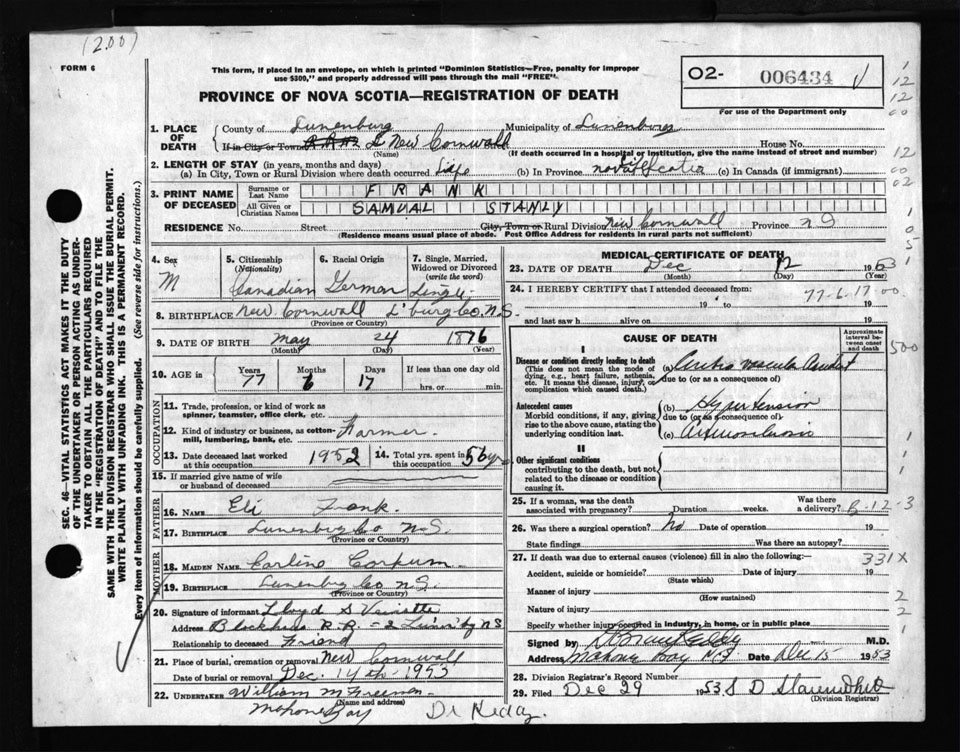 (2.00)
FORM 6
This form, if placed in an envelope, on which is printed "Dominion Statistics—Free, penalty for improper
use $300," and properly addressed will pass through the mail "FREE".
PROVINCE OF NOVA SCOTIA—REGISTRATION OF DEATH
O2- 006434
For use of the Department only
1. PLACE OF DEATH
County of Lunenburg Municipality of Lunenburg
If in City or Town New Cornwall House No.
(Name) (If death occurred in a hospital or institution, give the name instead of street and number)
2. LENGTH OF STAY (in years, months and days)
(a) In City, Town or Rural Division where death occurred Life (b) In Province Life Nova Scotia (c) In Canada (if immigrant)
3. PRINT NAME OF DECEASED
Surname or Last Name FRANK
All Given or Christian Names SAMUAL STANLY
RESIDENCE No. Street City, Town or Rural Division New Cornwall Province NS
(Residence means usual place of abode. Post Office Address for residents in rural parts not sufficient)
4. Sex M
5. Citizenship (Nationality) Canadian
6. Racial Origin German
7. Single, Married, Widowed or Divorced (write the word) Single
8. BIRTHPLACE New Cornwall L'burg Co. N.S.
(Province or Country)
9. DATE OF BIRTH May 24 1876
(Month) (Day) (Year)
10. AGE in Years Months Days If less than one day old
77 6 17 hrs. or min.
OCCUPATION
11. Trade, profession, or kind of work as
spinner, teamster, office clerk, etc.
12. Kind of industry or business, as cotton-
mill, lumbering, bank, etc. Farmer
13. Date deceased last worked
at this occupation 1952
14. Total yrs. spent in
this occupation 56 yrs
15. If married give name of wife
or husband of deceased
FATHER
16. NAME Eli Frank
17. BIRTHPLACE Lunenburg Co N.S.
(Province or Country)
MOTHER
18. MAIDEN NAME
19. BIRTHPLACE Lunenburg Co N.S.
(Province or Country)
20. Signature of informant Lloyd S
Address R.R. - 2 NS
Relationship to deceased Friend
21. Place of burial, cremation or removal New Cornwall
Date of burial or removal Dec. 14th 1953
22. UNDERTAKER William M Freeman
(Name and address)
Mahone Bay
MEDICAL CERTIFICATE OF DEATH
23. DATE OF DEATH Dec 12 1953
(Month) (Day) (Year)
24. I HEREBY CERTIFY that I attended deceased from
77-6-17-00
19 to 19
and last saw h alive on 19
CAUSE OF DEATH
Approximate interval between onset and death
I
Disease or condition directly leading to death
(This does not mean the mode of
dying, e.g., heart failure, asthenia,
etc. It means the disease, injury, or
complication which caused death.)
(a)
due to (or as a consequence of)
Antecedent causes
Morbid conditions, if any, giving
rise to the above cause, stating the
underlying condition last.
(b) Hypertension
due to (or as a consequence of)
(c)
II
Other significant conditions
contributing to the death, but not
related to the disease or condition
causing it.
25. If a woman, was the death
associated with pregnancy? Duration weeks. Was there a delivery?
26. Was there a surgical operation? No Date of operation 19
State findings Was there an autopsy?
27. If death was due to external causes (violence) fill in also the following:— 331X
Accident, suicide or homicide? Date of injury 19
(State which)
Manner of injury
(How sustained)
Nature of injury
Specify whether injury occurred in industry, in home, or in public place
Signed by M.D.
Address Mahone Bay N.S Date Dec 15 1953
28. Division Registrar's Record Number
29. Filed Dec 29 1953 S D
(Division Registrar)
SEC. 46—VITAL STATISTICS ACT MAKES IT THE DUTY
OF THE UNDERTAKER OR PERSON ACTING AS UNDER-
TAKER TO OBTAIN ALL THE PARTICULARS REQUIRED
IN THE "REGISTRATION OF DEATH" AND TO FILE THE
SAME WITH THE DIVISION REGISTRAR WHO SHALL ISSUE THE BURIAL PERMIT.
WRITE PLAINLY WITH UNFADING INK. THIS IS A PERMANENT RECORD.
Every item of information should be carefully supplied. (See reverse side for instructions.)